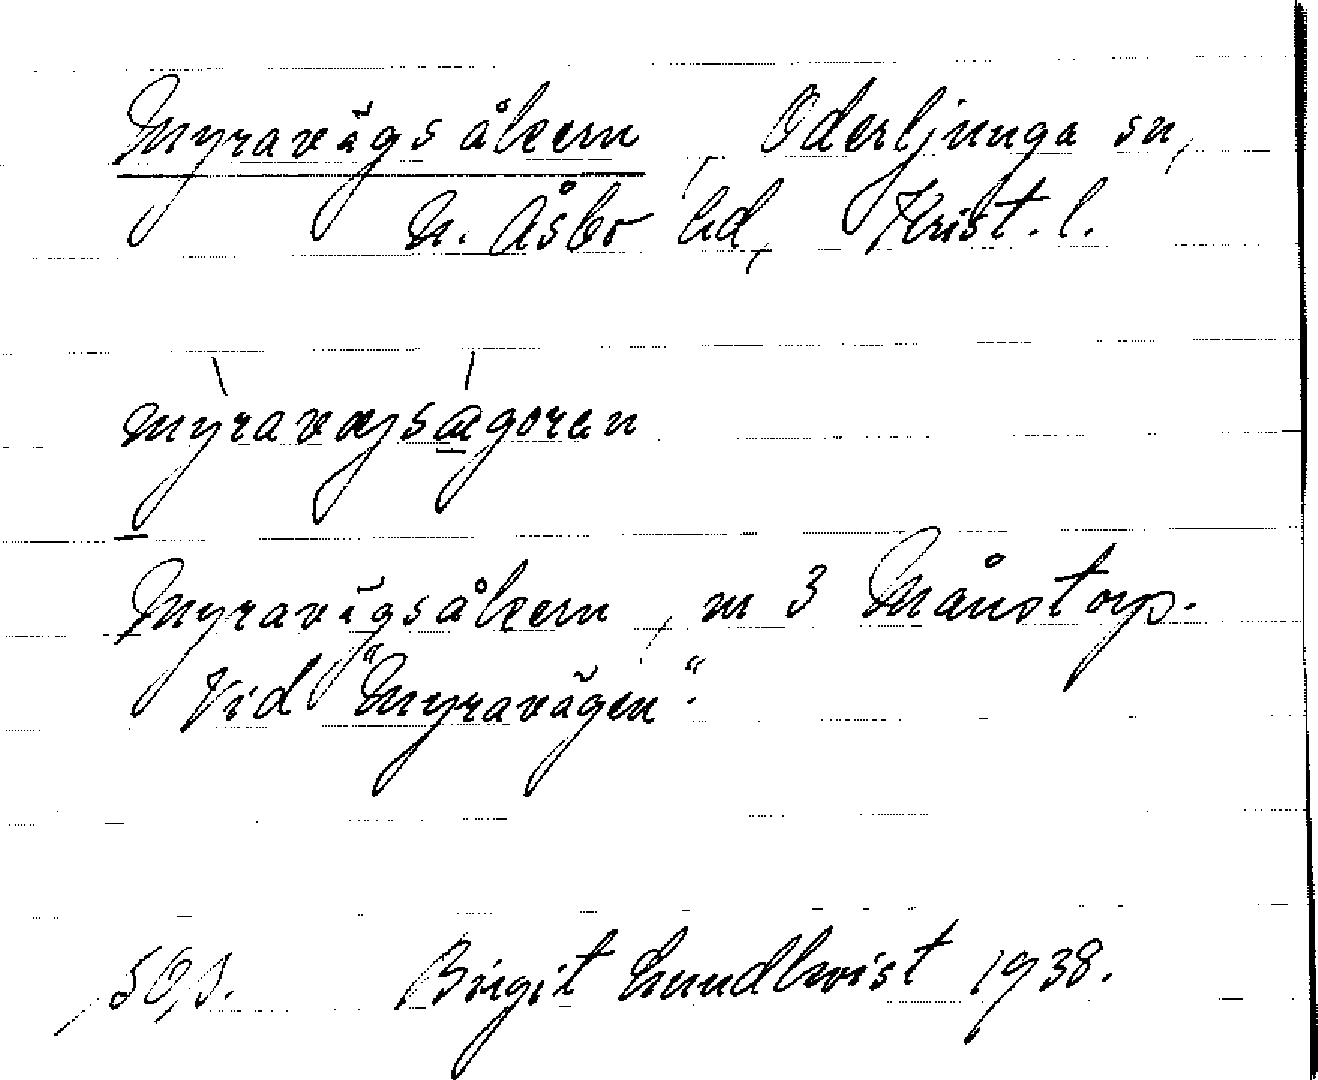 Myravägsåkern, Oderljunga sn,
N. Åsbo hd, Krist. l.
mỳravægsǽgoren
Myravägsåkern, nr 3 Månstorp.
Vid "Myravägen".
Birgit Lundkvist 1938.